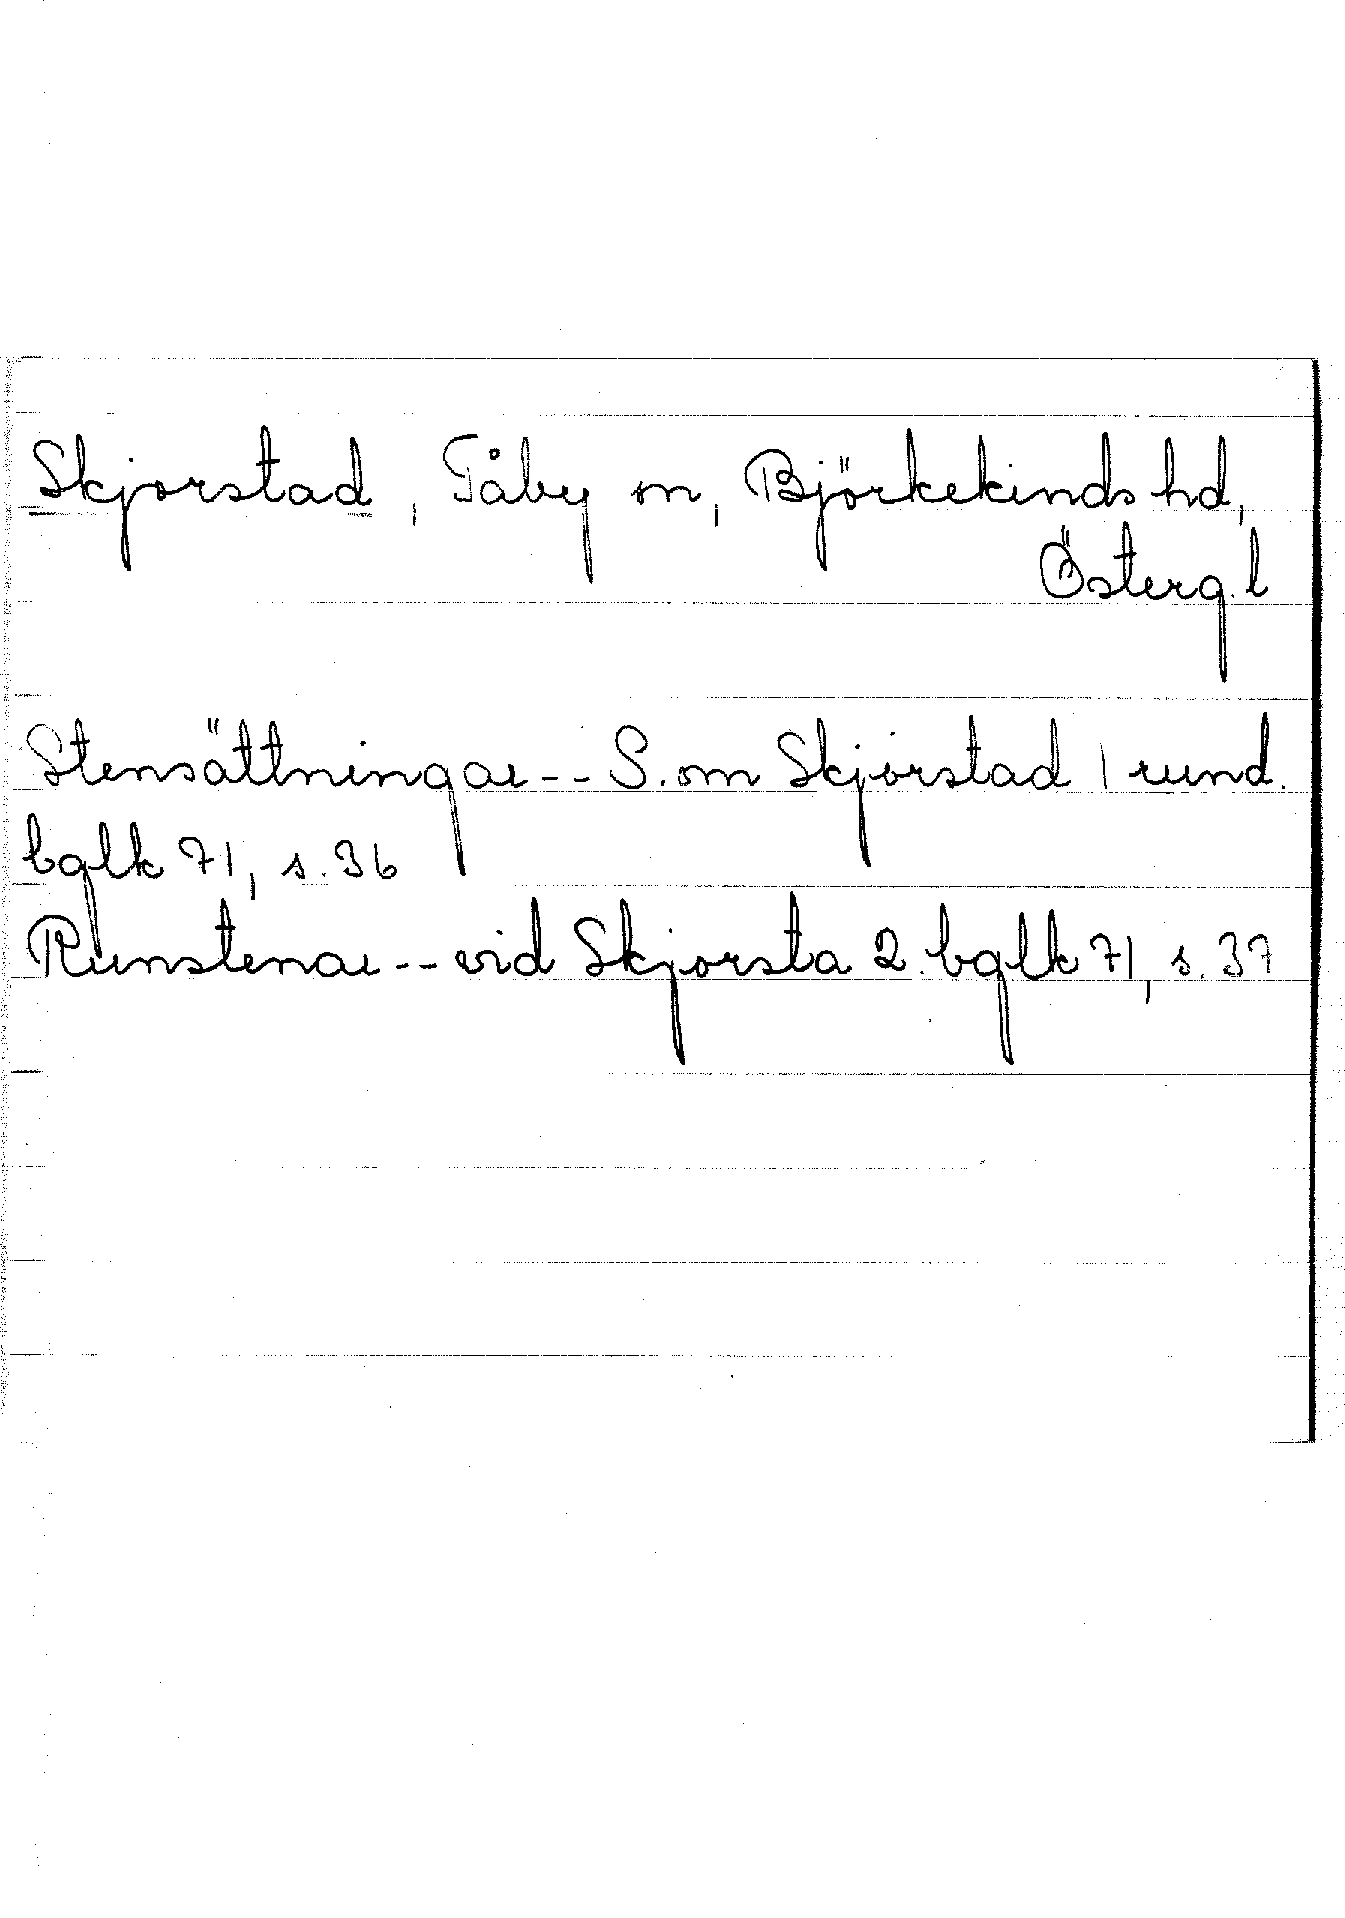 Skjorstad, Tåby sn, Björkekinds hd,
Österg. l
Stensättningar -- S. om Skjorstad 1 rund.
bglk 71, s. 36
Runstenar -- vid Skjorsta 2. bglk 71, s. 37